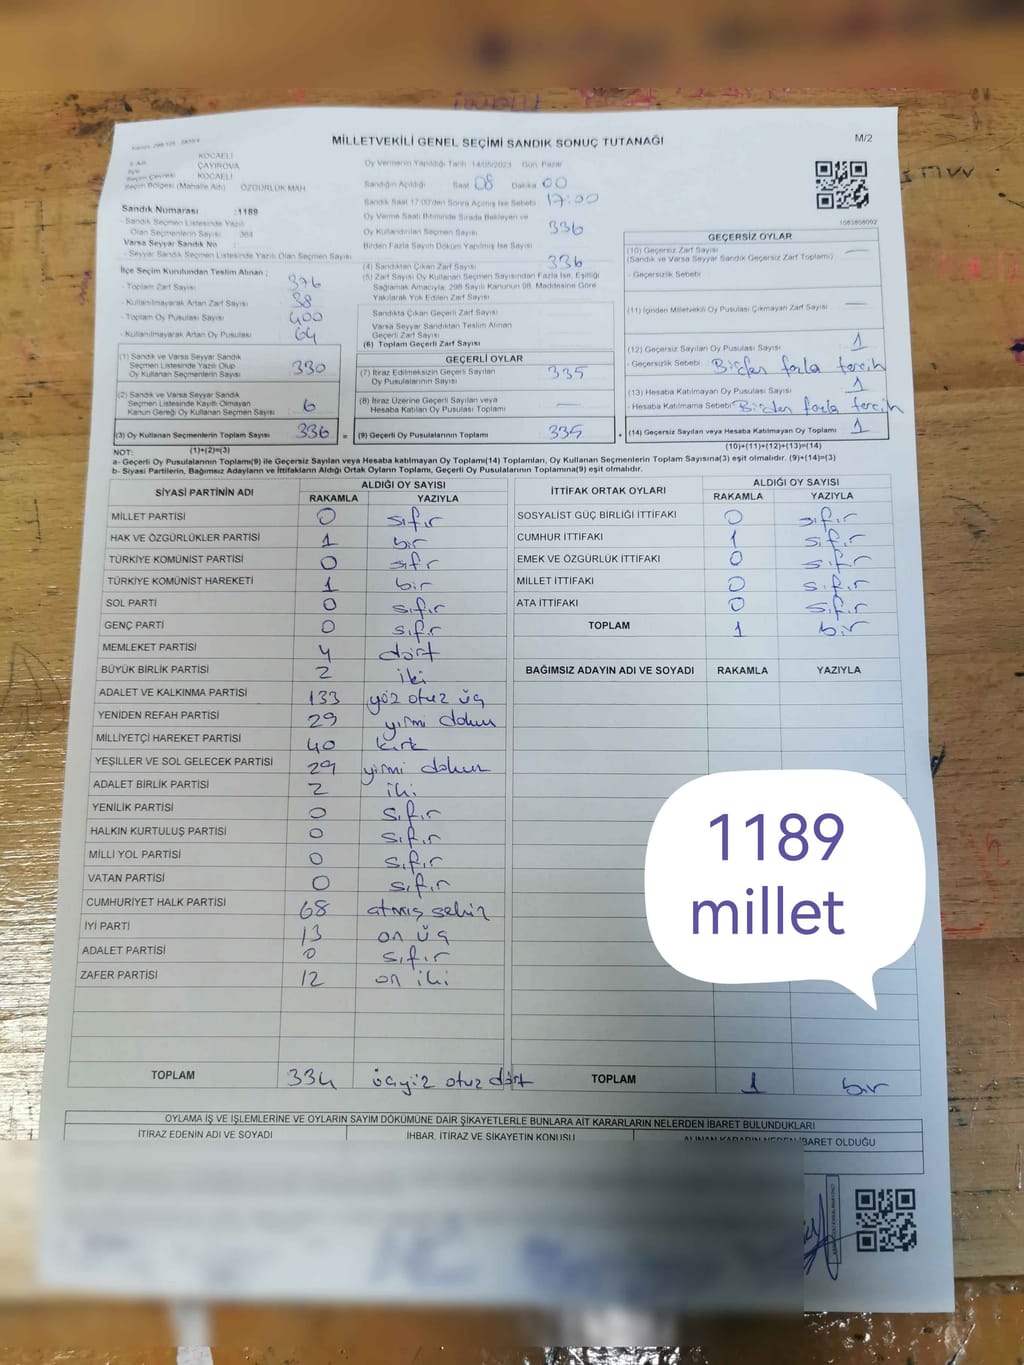 MİLLETVEKİLİ GENEL SEÇİMİ SANDIK SONUÇ TUTANAĞI
M/2
KOCAELİ
ÇAYIROVA
KOCAELİ
Seçim Bölgesi (Mahalle Adı) ÖZGÜRLÜK MAH.
Oy Vermenin Yapıldığı Tarih 14/05/2023 Gün Pazar
Sandığın Açıldığı Saat 08 Dakika 00
Sandık Saat 17:00'den Sonra Açılmış İse Sebebi 17:00
Oy Verme Saati Bitiminde Sırada Bekleyen ve
Oy Kullandırılan Seçmen Sayısı 336
Birden Fazla Sayım Döküm Yapılmış İse Sayısı
1083808092
Sandık Numarası :1189
- Sandık Seçmen Listesinde Yazılı
Olan Seçmenlerin Sayısı : 364
Varsa Seyyar Sandık No :
- Seyyar Sandık Seçmen Listesinde Yazılı Olan Seçmen Sayısı
İlçe Seçim Kurulundan Teslim Alınan ;
- Toplam Zarf Sayısı : 376
- Kullanılmayarak Artan Zarf Sayısı : 38
- Toplam Oy Pusulası Sayısı : 400
- Kullanılmayarak Artan Oy Pusulası : 64
(1) Sandık ve Varsa Seyyar Sandık
Seçmen Listesinde Yazılı Olup
Oy Kullanan Seçmenlerin Sayısı 330
(2) Sandık ve Varsa Seyyar Sandık
Seçmen Listesinde Kayıtlı Olmayan
Kanun Gereği Oy Kullanan Seçmen Sayısı 6
(3) Oy Kullanan Seçmenlerin Toplam Sayısı 336 =
(1)+(2)=(3)
(4) Sandıktan Çıkan Zarf Sayısı 336
(5) Zarf Sayısı Oy Kullanan Seçmen Sayısından Fazla İse, Eşitliği
Sağlamak Amacıyla, 298 Sayılı Kanunun 98. Maddesine Göre
Yakılarak Yok Edilen Zarf Sayısı
Sandıkta Çıkan Geçerli Zarf Sayısı
Varsa Seyyar Sandıktan Teslim Alınan
Geçerli Zarf Sayısı
(6) Toplam Geçerli Zarf Sayısı
GEÇERLİ OYLAR
(7) İtiraz Edilmeksizin Geçerli Sayılan
Oy Pusulalarının Sayısı 335
(8) İtiraz Üzerine Geçerli Sayılan ve
Hesaba Katılan Oy Pusulası Toplamı —
(9) Geçerli Oy Pusulalarının Toplamı 335 +
GEÇERSİZ OYLAR
(10) Geçersiz Zarf Sayısı —
(Sandık ve Varsa Seyyar Sandık Geçersiz Zarf Toplamı)
- Geçersizlik Sebebi
(11) İçinden Milletvekili Oy Pusulası Çıkmayan Zarf Sayısı —
(12) Geçersiz Sayılan Oy Pusulası Sayısı 1
- Geçersizlik Sebebi Birden fazla tercih
(13) Hesaba Katılmayan Oy Pusulası Sayısı 1
- Hesaba Katılmama Sebebi Birden fazla tercih
(14) Geçersiz Sayılan veya Hesaba Katılmayan Oy Toplamı 1
(10)+(11)+(12)+(13)=(14)
NOT:
a- Geçerli Oy Pusulalarının Toplamı(9) ile Geçersiz Sayılan veya Hesaba katılmayan Oy Toplamı(14) Toplamları, Oy Kullanan Seçmenlerin Toplam Sayısına(3) eşit olmalıdır. (9)+(14)=(3)
b- Siyasi Partilerin, Bağımsız Adayların ve İttifakların Aldığı Ortak Oyların Toplamı, Geçerli Oy Pusulalarının Toplamına(9) eşit olmalıdır.
SİYASİ PARTİNİN ADI
ALDIĞI OY SAYISI
RAKAMLA YAZIYLA
MİLLET PARTİSİ 0 sıfır
HAK VE ÖZGÜRLÜKLER PARTİSİ 1 bir
TÜRKİYE KOMÜNİST PARTİSİ 0 sıfır
TÜRKİYE KOMÜNİST HAREKETİ 1 bir
SOL PARTİ 0 sıfır
GENÇ PARTİ 0 sıfır
MEMLEKET PARTİSİ 4 dört
BÜYÜK BİRLİK PARTİSİ 2 iki
ADALET VE KALKINMA PARTİSİ 133 yüz otuz üç
YENİDEN REFAH PARTİSİ 29 yirmi dokuz
MİLLİYETÇİ HAREKET PARTİSİ 40 kırk
YEŞİLLER VE SOL GELECEK PARTİSİ 29 yirmi dokuz
ADALET BİRLİK PARTİSİ 2 iki
YENİLİK PARTİSİ 0 sıfır
HALKIN KURTULUŞ PARTİSİ 0 sıfır
MİLLİ YOL PARTİSİ 0 sıfır
VATAN PARTİSİ 0 sıfır
CUMHURİYET HALK PARTİSİ 68 atmış sekiz
İYİ PARTİ 13 on üç
ADALET PARTİSİ 0 sıfır
ZAFER PARTİSİ 12 on iki
TOPLAM 334 üçyüz otuz dört
İTTİFAK ORTAK OYLARI
ALDIĞI OY SAYISI
RAKAMLA YAZIYLA
SOSYALİST GÜÇ BİRLİĞİ İTTİFAKI 0 sıfır
CUMHUR İTTİFAKI 1 sıfır
EMEK VE ÖZGÜRLÜK İTTİFAKI 0 sıfır
MİLLET İTTİFAKI 0 sıfır
ATA İTTİFAKI 0 sıfır
TOPLAM 1 bir
BAĞIMSIZ ADAYIN ADI VE SOYADI RAKAMLA YAZIYLA
TOPLAM 1 bir
1189
millet
OYLAMA İŞ VE İŞLEMLERİNE VE OYLARIN SAYIM DÖKÜMÜNE DAİR ŞİKAYETLERLE BUNLARA AİT KARARLARIN NELERDEN İBARET BULUNDUKLARI
İTİRAZ EDENİN ADI VE SOYADI
İHBAR, İTİRAZ VE ŞİKAYETİN KONUSU
ALINAN KARARIN NEDEN İBARET OLDUĞU